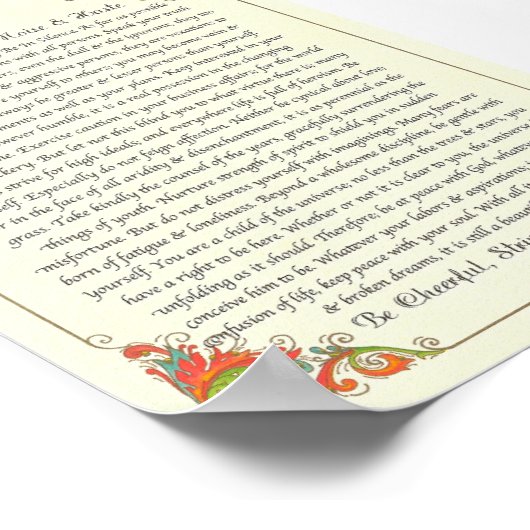 Noise & Haste.
Be In Silence. As far as possible
with all persons. Speak your truth
even the dull & the ignorant; they
& aggressive persons, they are vexations to
yourself to others, you may become vain &
always be greater & lesser persons than yourself
ments as well as your plans. Keep interested in your
wever humble, it is a real possession in the changing
Exercise caution in your business affairs; for the world
kery. But let not this blind you to what virtue there is; many
strive for high ideals; and everywhere life is full of heroism. Be
self. Especially do not feign affection. Neither be cynical about love;
in the face of all aridity & disenchantment, it is as perennial as the
grass. Take kindly the counsel of the years, gracefully surrendering the
things of youth. Nurture strength of spirit to shield you in sudden
misfortune. But do not distress yourself with imaginings. Many fears are
born of fatigue & loneliness. Beyond a wholesome discipline, be gentle with
yourself. You are a child of the universe, no less than the trees & stars, you
have a right to be here. Whether or not it is clear to you, the universe
unfolding as it should. Therefore, be at peace with God, whatever
conceive him to be. Whatever your labors & aspirations
confusion of life, keep peace with your soul. With all
& broken dreams, it is still a beau
Be Cheerful, Stri